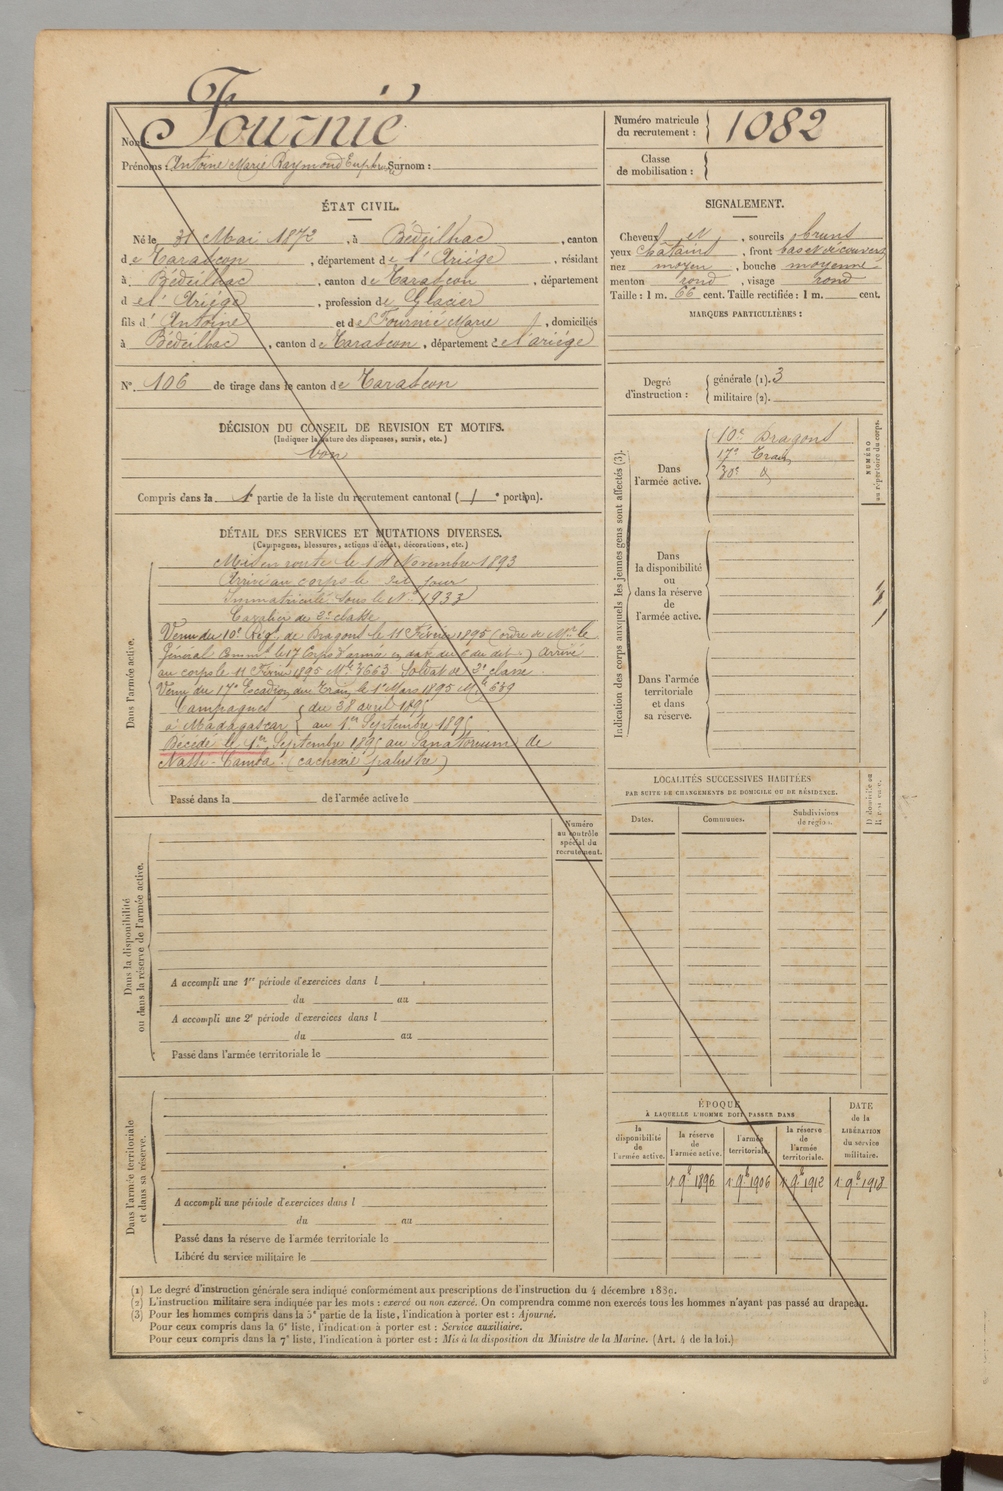 Nom: Fournié
Prénoms: Antoine Marie Raymond Surnom:
ÉTAT CIVIL.
Né le 31 Mai 1872, à Bédeilhac, canton
de Tarascon, département de l'Ariège, résidant
à Bédeilhac, canton de Tarascon, département
de l'Ariège, profession de Glacier
fils d'Antoine et de Fournié Marie, domiciliés
à Bédeilhac, canton de Tarascon, département de l'ariège
N° 106 de tirage dans le canton de Tarascon
DÉCISION DU CONSEIL DE REVISION ET MOTIFS.
(Indiquer la nature des dispenses, sursis, etc.)
bon
Compris dans la 1e partie de la liste du recrutement cantonal ( / e portion).
DÉTAIL DES SERVICES ET MUTATIONS DIVERSES.
(Campagnes, blessures, actions d'éclat, décorations, etc.)
Dans l'armée active.
Mis en route le 14 Novembre 1893
Arrivé au corps le dit jour
Immatriculé sous le N° 1933
Cavalier de 2e classe
Venu du 10e Rég. de Dragons le 11 Février 1895 (ordre de Mr le
Général Commt le 17 Corps d'armée en date du dit) Arrivé
au corps le 11 Février 1895 Mle 3663 Soldat de 2e classe
Venu du 17e Escadron du Train le 1er Mars 1895 Mle 639
Campagnes { du 28 avril 1895
à Madagascar { au 1er Septembre 1895
Décédé le 1er Septembre 1895 au Sanatorium de
Nossi-Comba (cachexie palustre)
Passé dans la de l'armée active le
Numéro
au contrôle
spécial du
recrutement.
Dans la disponibilité
ou dans la réserve de l'armée active.
A accompli une 1re période d'exercices dans l
du au
A accompli une 2e période d'exercices dans l
du au
Passé dans l'armée territoriale le
Dans l'armée territoriale
et dans sa réserve.
A accompli une période d'exercices dans l
du au
Passé dans la réserve de l'armée territoriale le
Libéré du service militaire le
Numéro matricule
du recrutement: 1082
Classe
de mobilisation:
SIGNALEMENT.
Cheveux et, sourcils bruns
yeux châtains, front bas et découvert
nez moyen, bouche moyenne
menton rond, visage rond
Taille: 1 m. 66 cent. Taille rectifiée: 1 m. cent.
MARQUES PARTICULIÈRES:
Degré
d'instruction:
générale (1). 3
militaire (2).
Indication des corps auxquels les jeunes gens sont affectés (3).
Dans
l'armée active.
10e Dragons
17e Train
30e d°
NUMÉRO
au répertoire du corps.
Dans
la disponibilité
ou
dans la réserve
de
l'armée active.
Dans l'armée
territoriale
et dans
sa réserve.
LOCALITÉS SUCCESSIVES HABITÉES
PAR SUITE DE CHANGEMENTS DE DOMICILE OU DE RÉSIDENCE.
Dates. Communes. Subdivisions
de région.
ÉPOQUE
À LAQUELLE L'HOMME DOIT PASSER DANS
la
disponibilité
de
l'armée active.
la réserve
de
l'armée active.
l'armée
territoriale.
la réserve
de
l'armée
territoriale.
DATE
de la
LIBÉRATION
du service
militaire.
1 9b 1896 1 9b 1906 1 9b 1912 1 9b 1918
(1) Le degré d'instruction générale sera indiqué conformément aux prescriptions de l'instruction du 4 décembre 1889.
(2) L'instruction militaire sera indiquée par les mots: exercé ou non exercé. On comprendra comme non exercés tous les hommes n'ayant pas passé au drapeau.
(3) Pour les hommes compris dans la 5e partie de la liste, l'indication à porter est: Ajourné.
Pour ceux compris dans la 6e liste, l'indication à porter est: Service auxiliaire.
Pour ceux compris dans la 7e liste, l'indication à porter est: Mis à la disposition du Ministre de la Marine. (Art. 4 de la loi.)